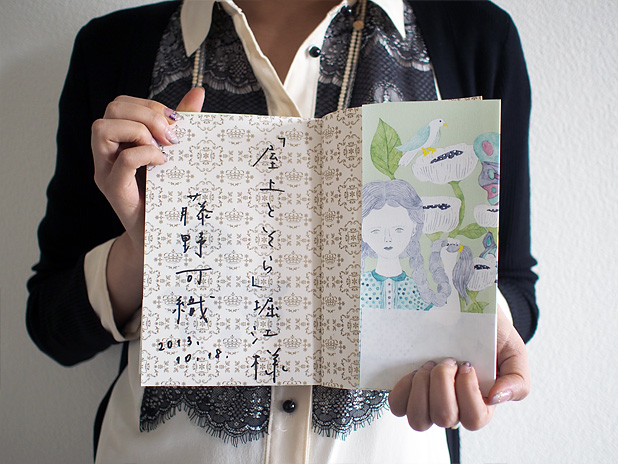 「屋上とそら」堀江様
藤野可織
2013.
10.18.